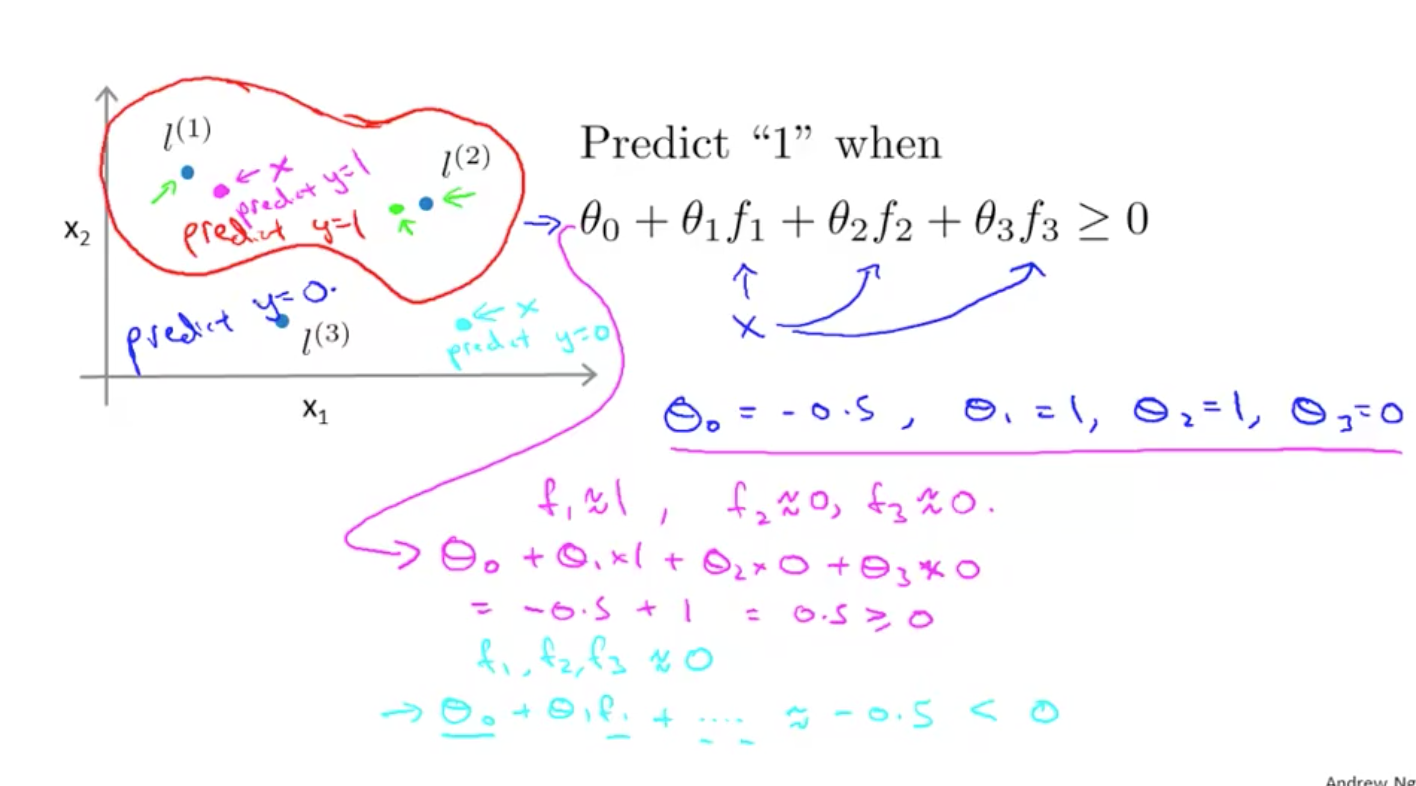 l^(1)
l^(2)
← x
predict y=1
predict y=1
x₂
predict y=0.
l^(3)
← x
predict y=0
x₁
Predict “1” when
→ θ₀ + θ₁f₁ + θ₂f₂ + θ₃f₃ ≥ 0
x
θ₀ = -0.5, θ₁ = 1, θ₂ = 1, θ₃ = 0
f₁ ≈ 1, f₂ ≈ 0, f₃ ≈ 0.
θ₀ + θ₁×1 + θ₂×0 + θ₃×0
= -0.5 + 1 = 0.5 ≥ 0
f₁, f₂, f₃ ≈ 0
→ θ₀ + θ₁f₁ + .... ≈ -0.5 < 0
Andrew Ng